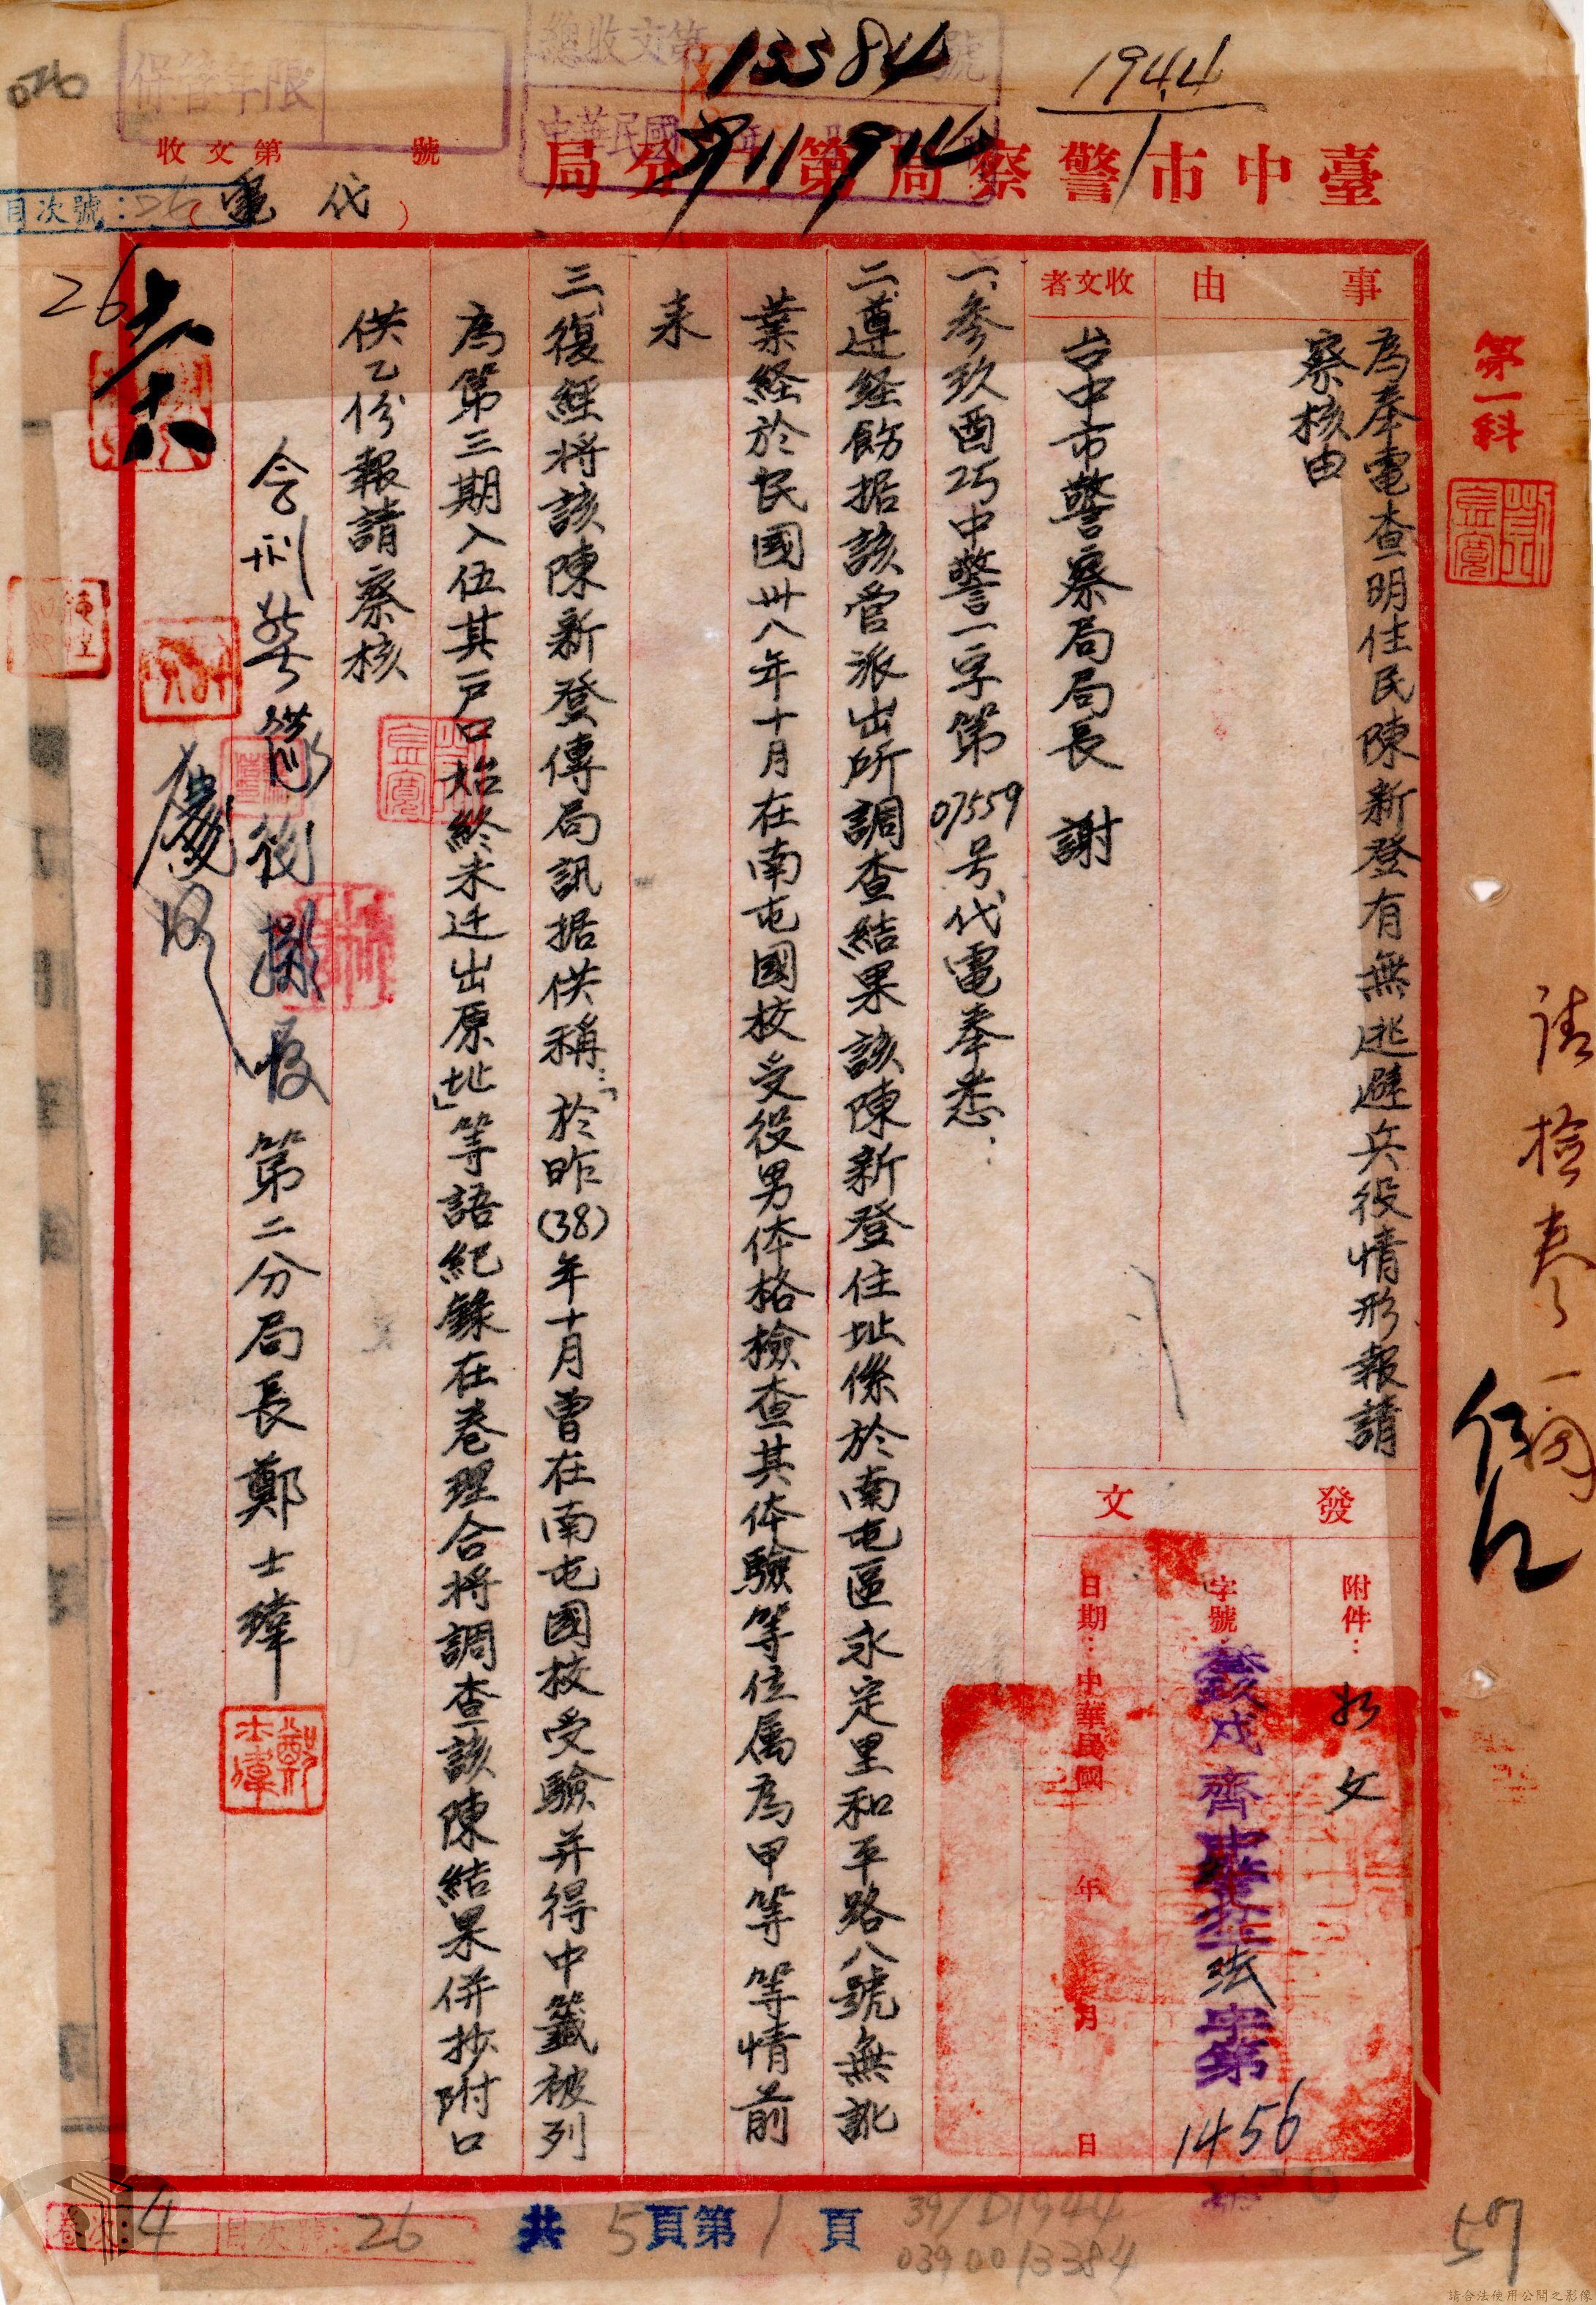 1944
1
總收文第 13384 號
中華民國 39 11 9 14
保管年限
收文第 號
(代電)
目次號：26
臺中市警察局第二分局
第一科
事由
為奉電查明住民陳新登有無逃避兵役情形報請
察核由
收文者
台中市警察局局長 謝
發文
附件：如文
字號：玖戌齊中警二法字第1456號
日期：中華民國 年 月 日
一、參玖酉巧中警一字第07559号代電奉悉：
二、遵経飭据該管派出所調查結果該陳新登住址係於南屯區永定里和平路八號無訛
業経於民國卅八年十月在南屯國校受役男体格檢查其体驗等位属為甲等等情前
来
三、復經将該陳新登傳局訊据供稱：「於昨(38)年十月曾在南屯國校受驗并得中籤被列
為第三期入伍其戸口始終未迁出原址」等語紀錄在卷理合将調查該陳結果併抄附口
供乙份報請察核
第二分局長鄭士瑋
26
卷次 4 目次號：26
共5頁第1頁
39/D1944
0390013384
57
請合法使用公開之影像